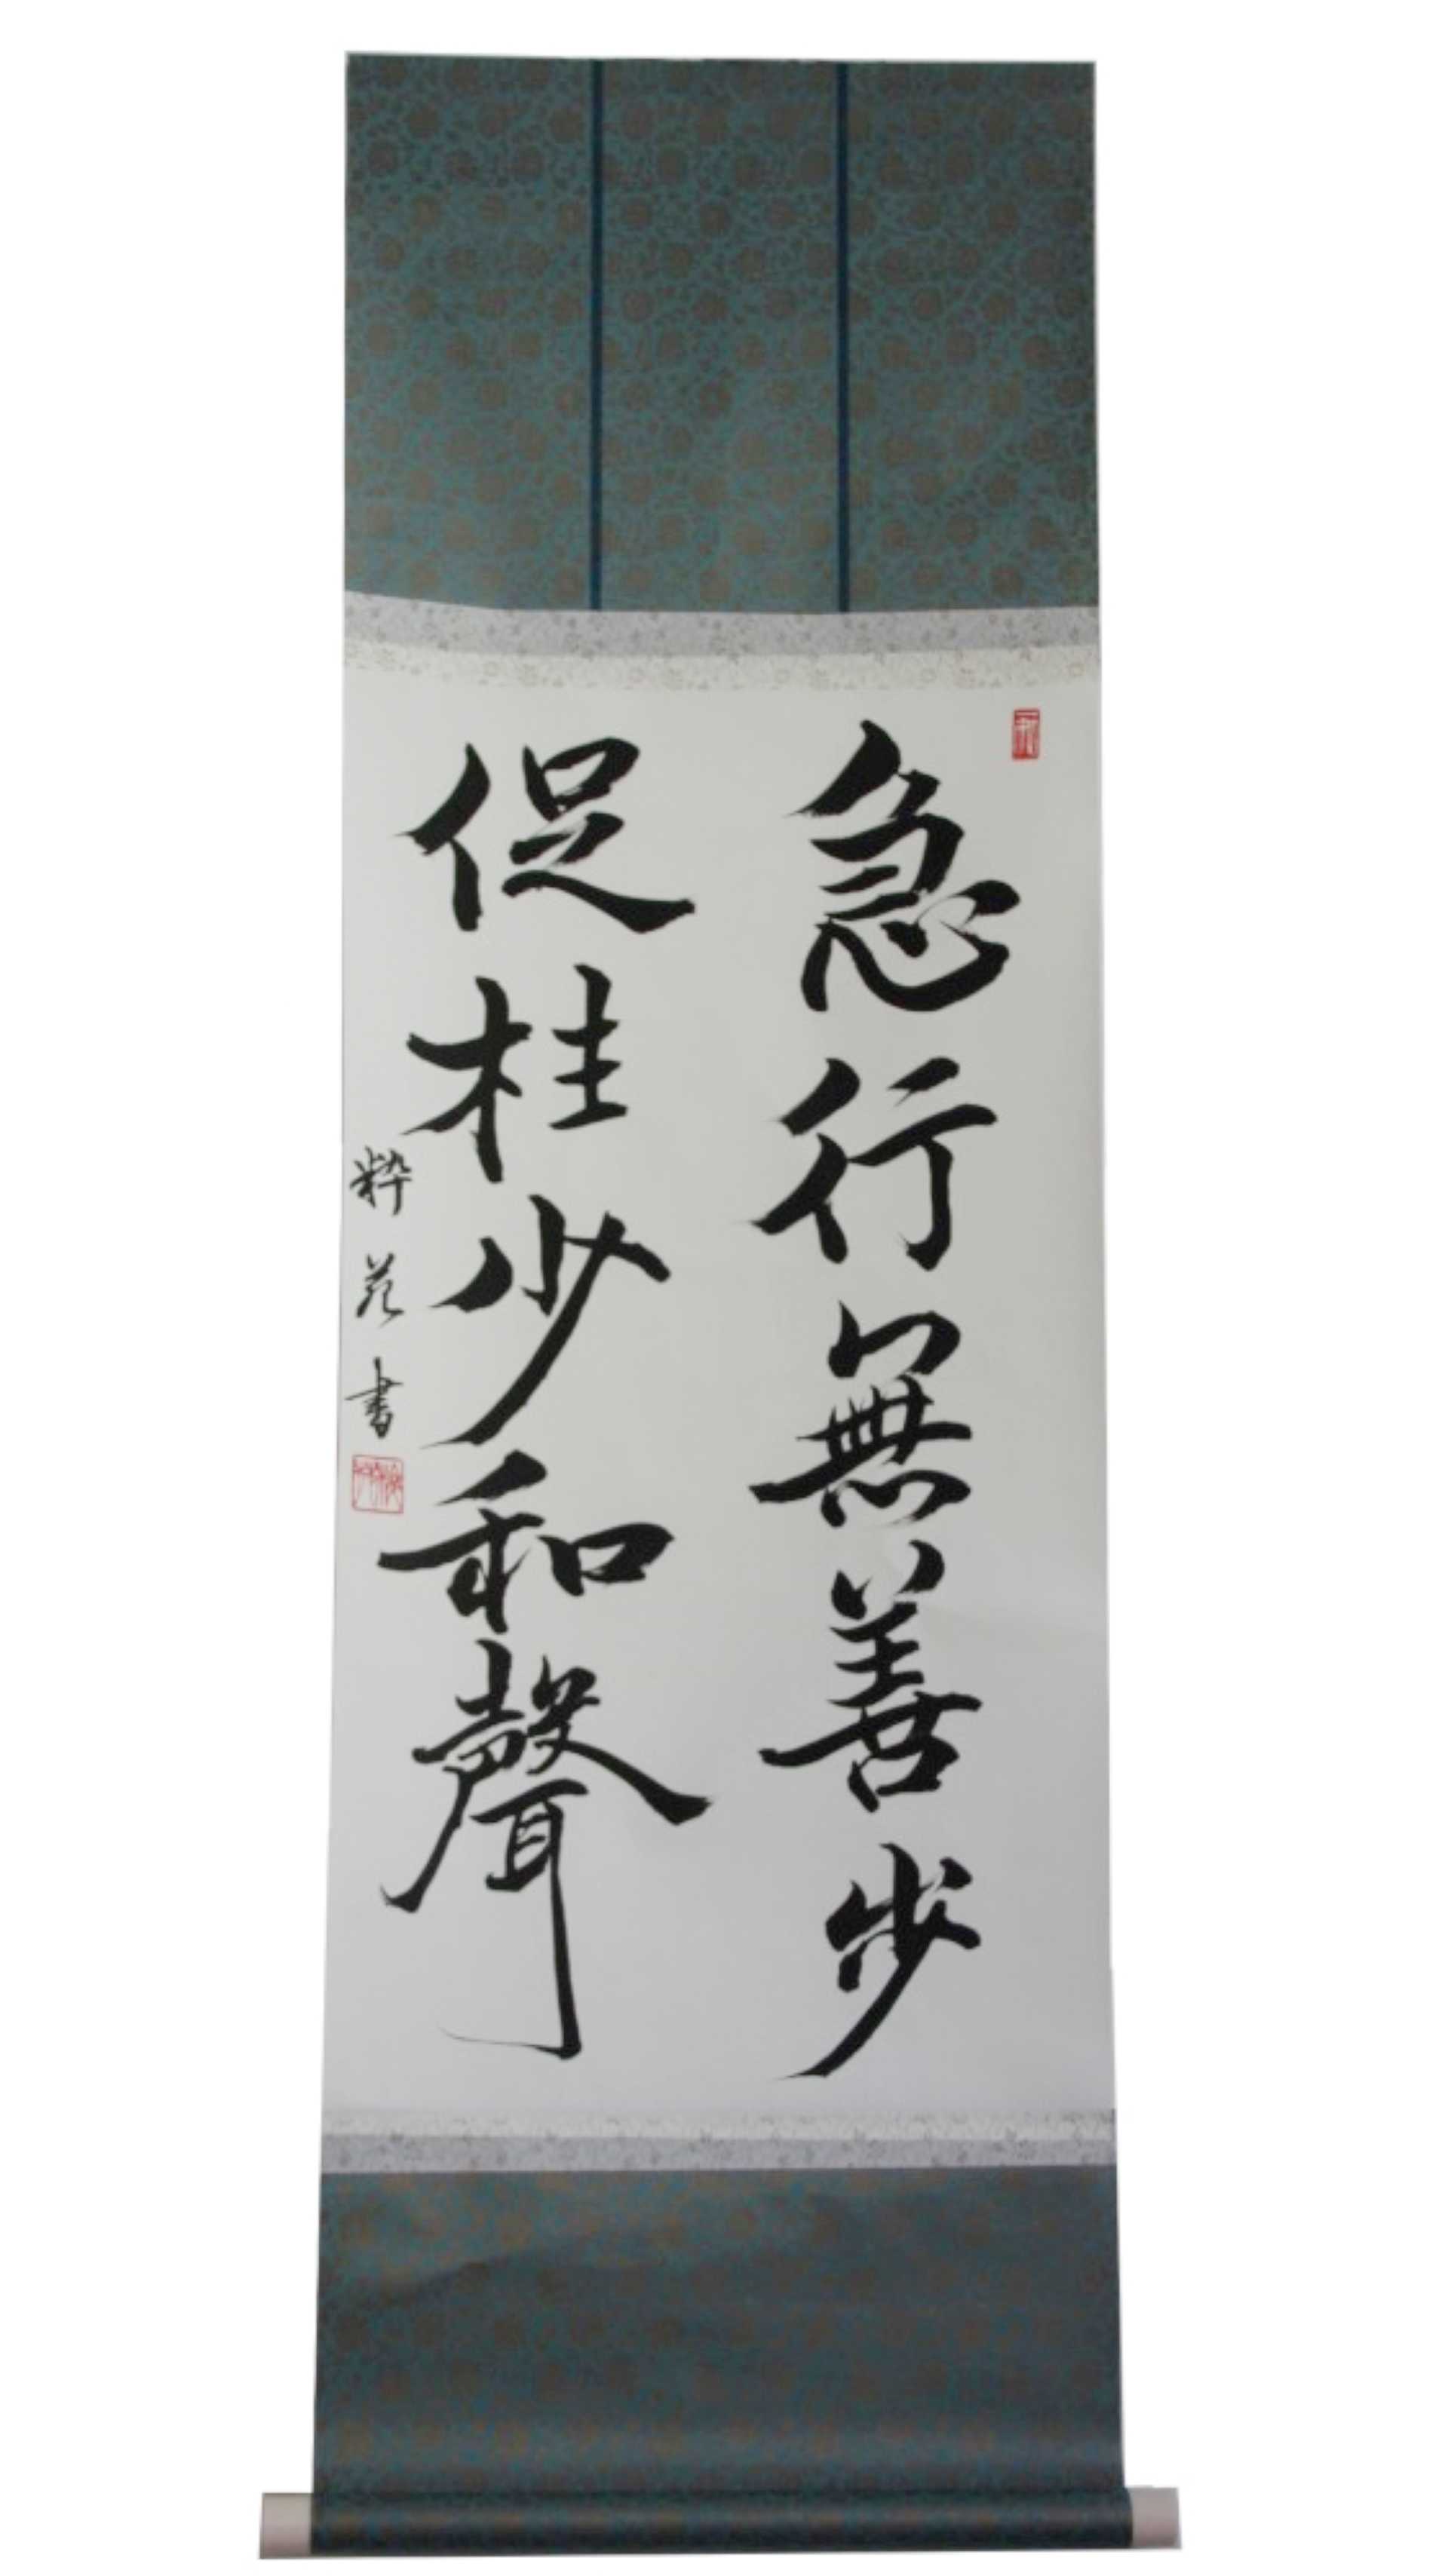 急行無善歩
促柱少和聲
粋苑書